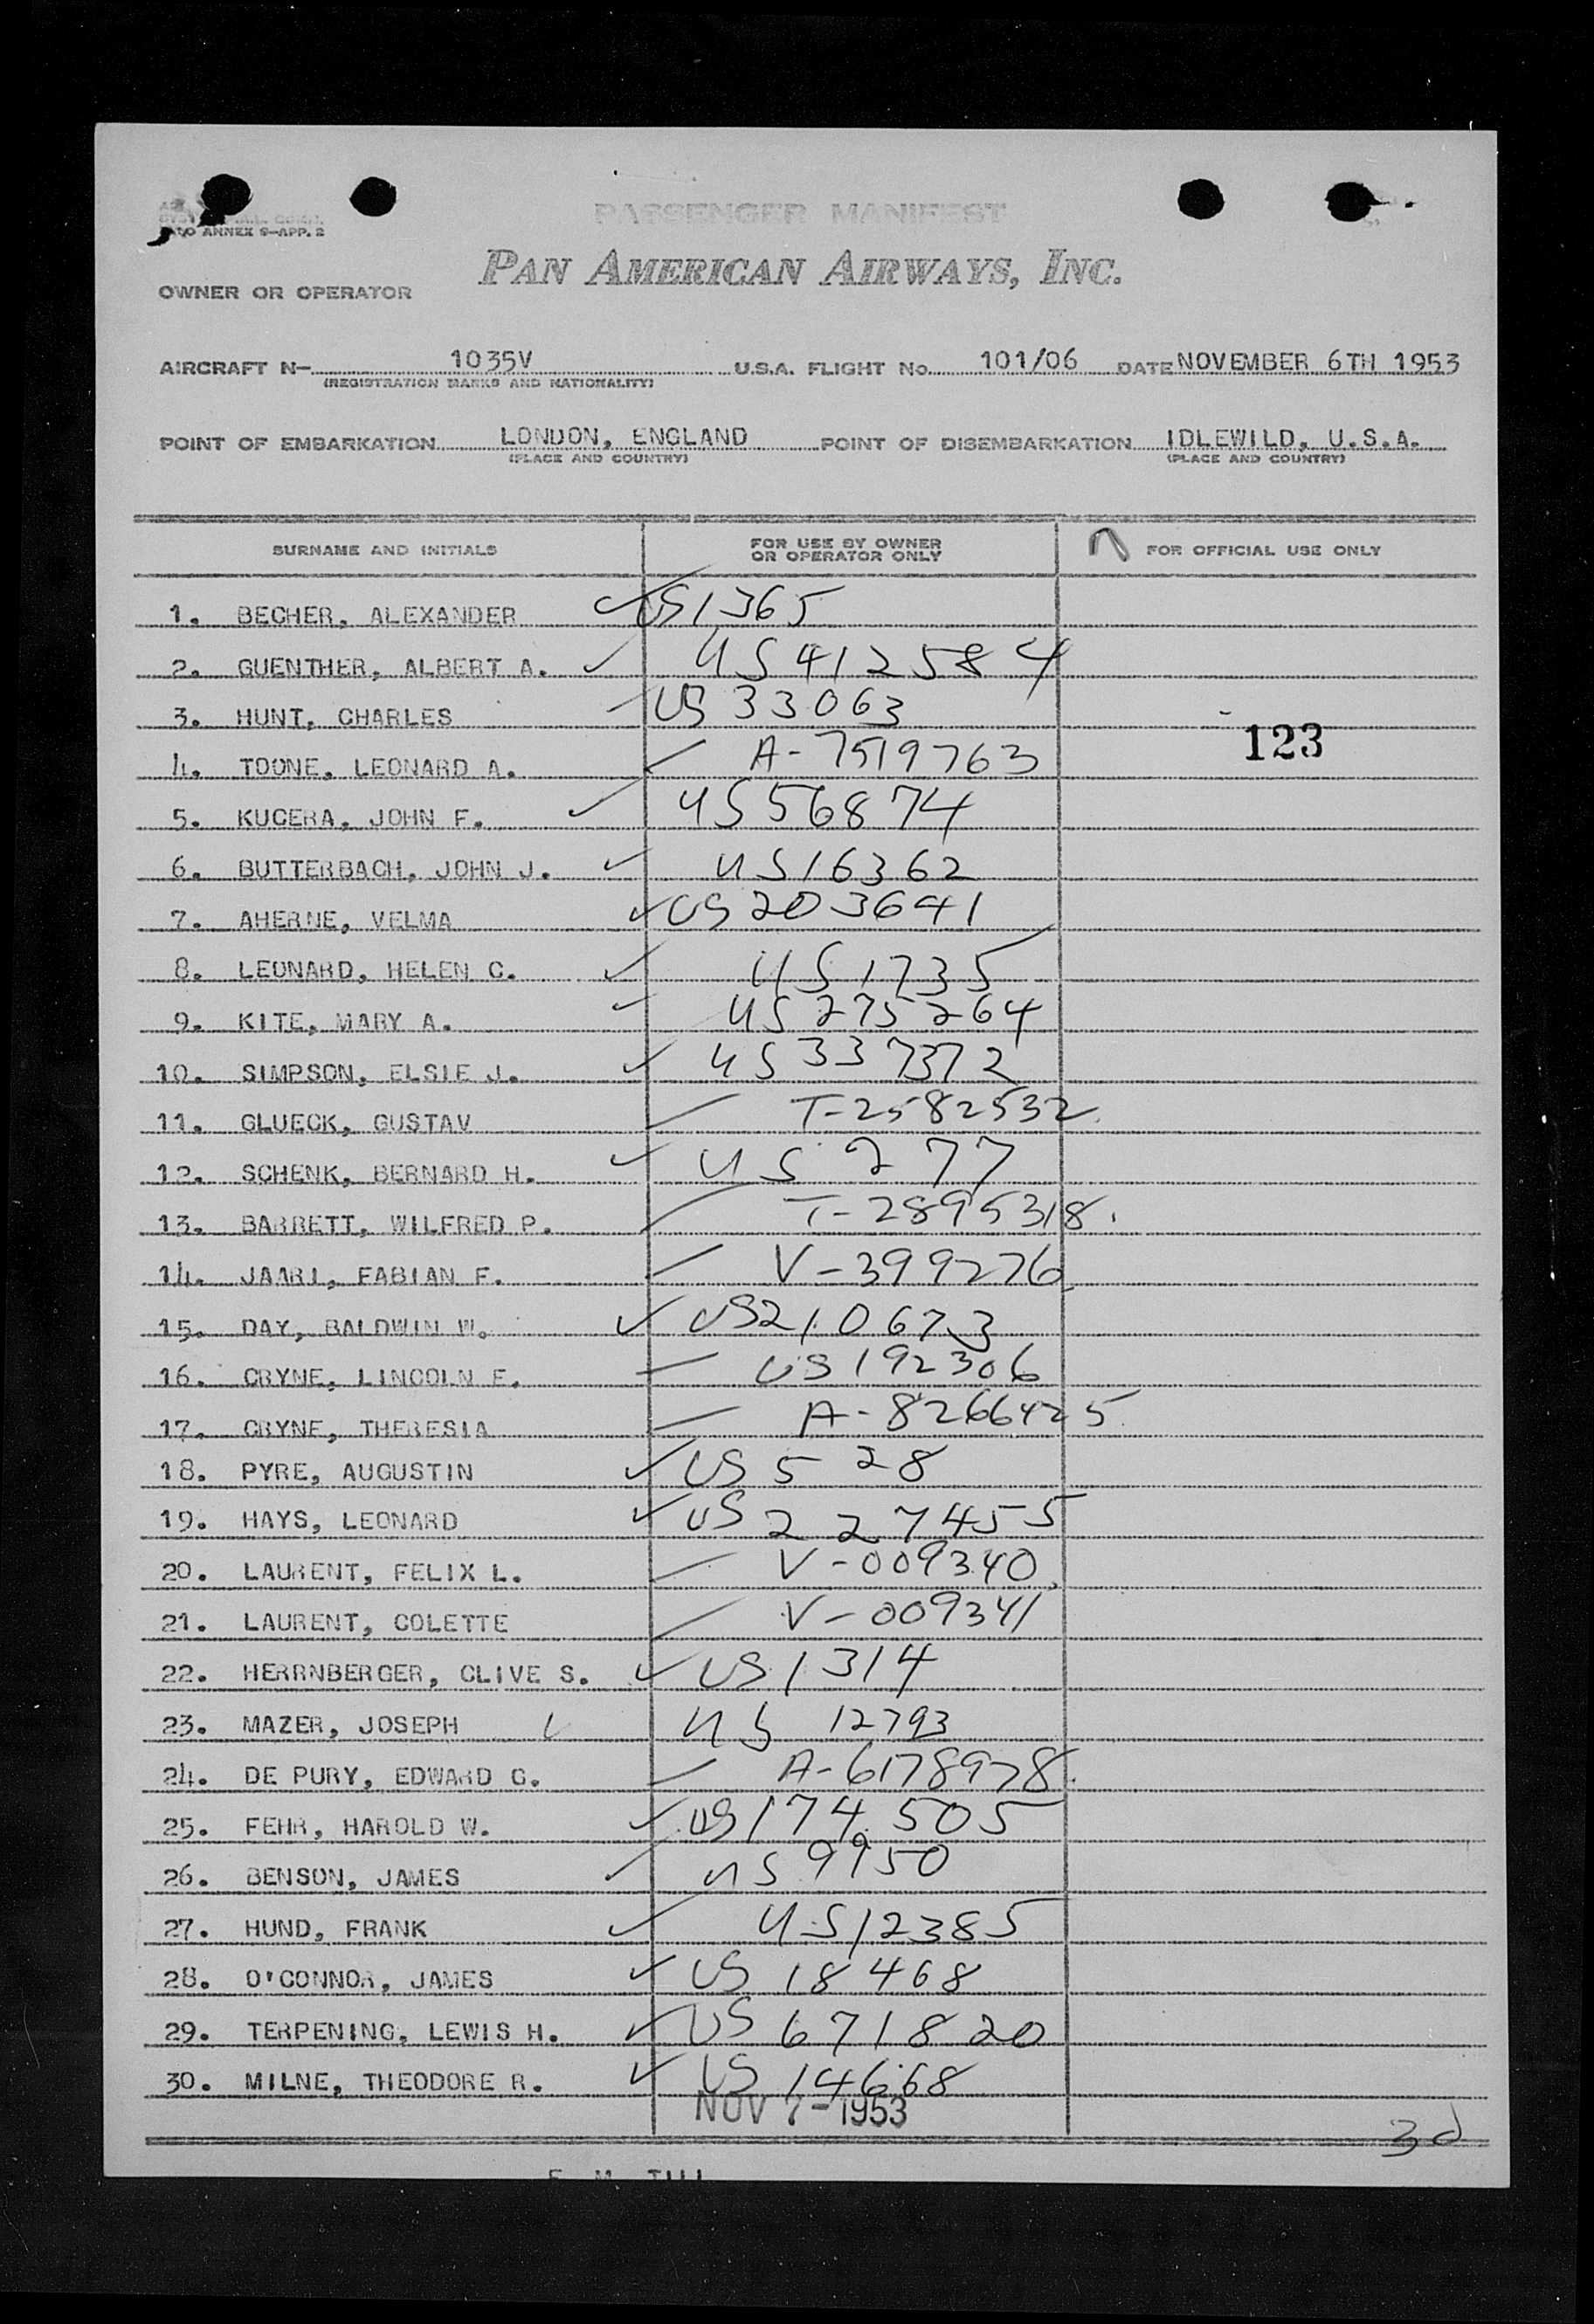 ICAO ANNEX 9-APP. 2
PASSENGER MANIFEST
PAN AMERICAN AIRWAYS, INC.
OWNER OR OPERATOR
AIRCRAFT N- 1035V U.S.A. FLIGHT No. 101/06 DATE NOVEMBER 6TH 1953
(REGISTRATION MARKS AND NATIONALITY)
POINT OF EMBARKATION LONDON, ENGLAND POINT OF DISEMBARKATION IDLEWILD, U.S.A.
(PLACE AND COUNTRY) (PLACE AND COUNTRY)
SURNAME AND INITIALS FOR USE BY OWNER OR OPERATOR ONLY FOR OFFICIAL USE ONLY
1. BECHER, ALEXANDER US1365
2. GUENTHER, ALBERT A. US412584
3. HUNT, CHARLES US 33063
123
4. TOONE, LEONARD A. A-7519763
5. KUCERA, JOHN F. US56874
6. BUTTERBACH, JOHN J. US16362
7. AHERNE, VELMA US203641
8. LEONARD, HELEN C. US1735
9. KITE, MARY A. US275264
10. SIMPSON, ELSIE J. US337372
11. GLUECK, GUSTAV T-2582532
12. SCHENK, BERNARD H. US277
13. BARRETT, WILFRED P. T-2895318.
14. JAARI, FABIAN F. V-399276
15. DAY, BALDWIN W. US210673
16. CRYNE, LINCOLN E. US192306
17. CRYNE, THERESIA A-8266425
18. PYRE, AUGUSTIN US 528
19. HAYS, LEONARD US 227455
20. LAURENT, FELIX L. V-009340
21. LAURENT, COLETTE V-009341
22. HERRNBERGER, CLIVE S. US1314
23. MAZER, JOSEPH US 12793
24. DE PURY, EDWARD G. A-6178978.
25. FEHR, HAROLD W. US174505
26. BENSON, JAMES US9950
27. HUND, FRANK US12385
28. O'CONNOR, JAMES US 18468
29. TERPENING, LEWIS H. US 671820
30. MILNE, THEODORE R. US 14668
NOV 7-1953